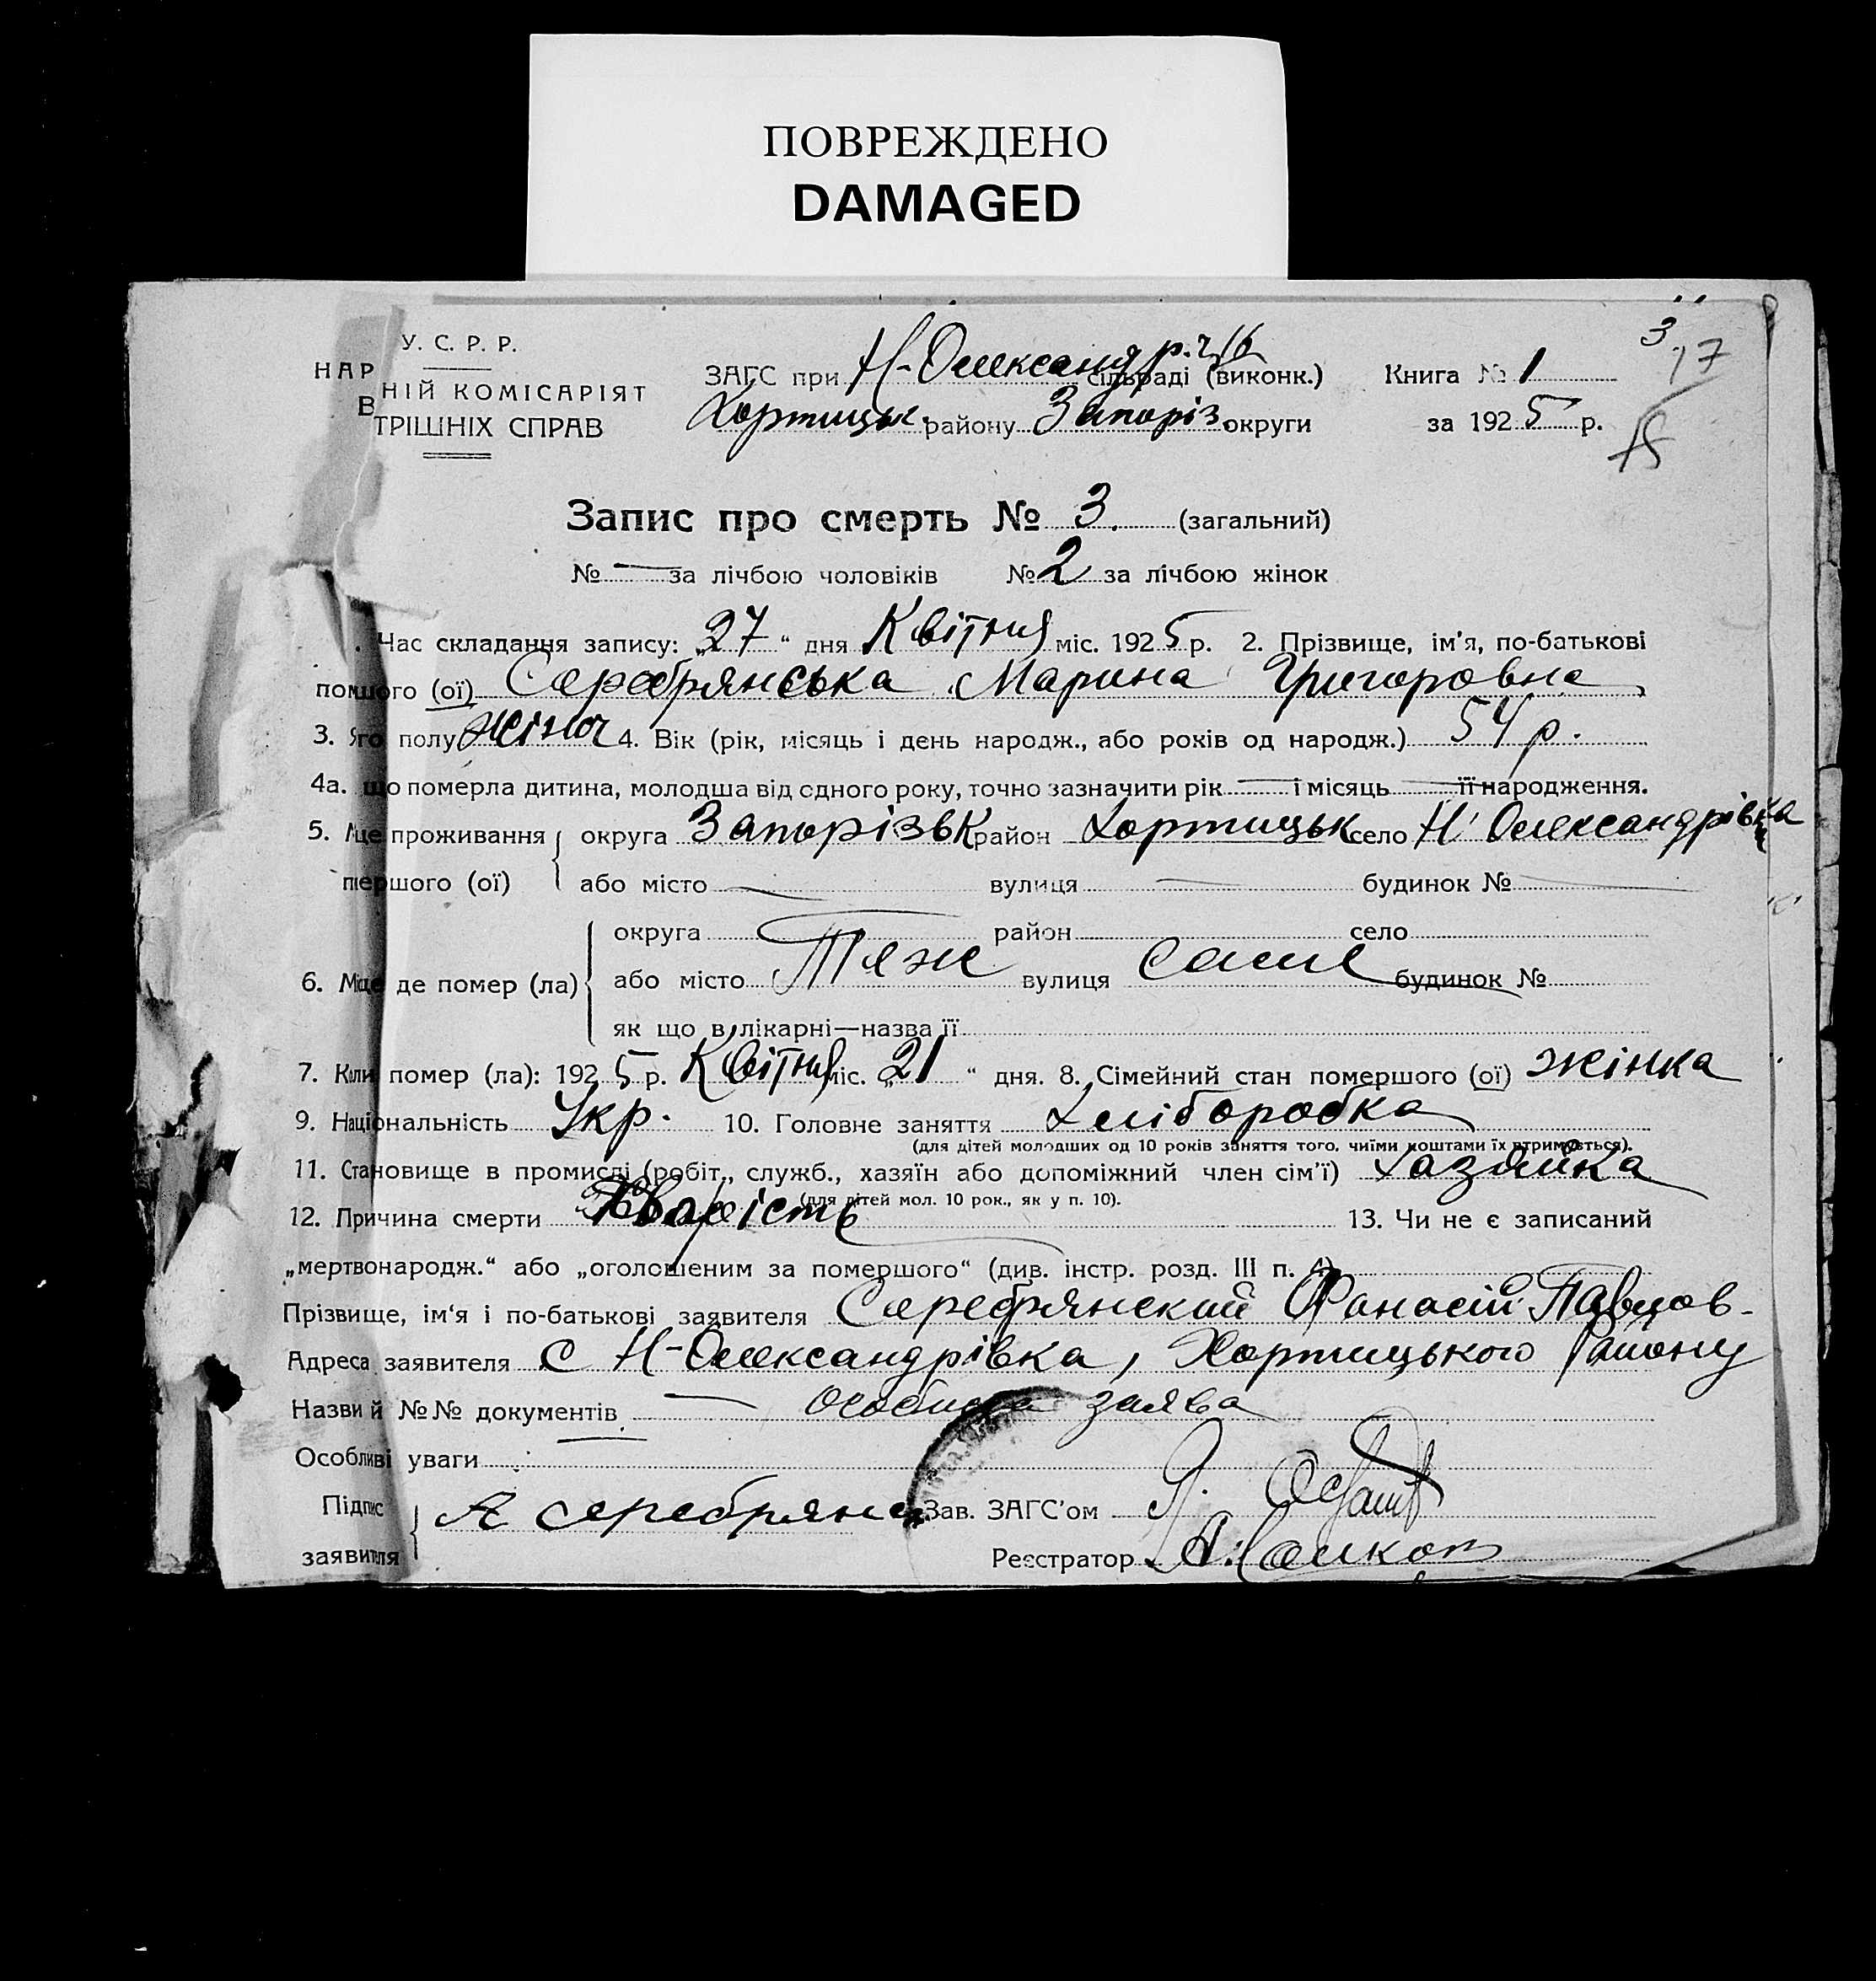 ПОВРЕЖДЕНО
DAMAGED
У. С. Р. Р.
НАР НІЙ КОМІСАРІЯТ
В ТРІШНІХ СПРАВ
ЗАГС при Н-Олександр. сільраді (виконк.)
Хортицьк. району Запоріз. округи
Книга № 1
за 1925 р.
3
17
Запис про смерть № 3. (загальний)
№ — за лічбою чоловіків № 2 за лічбою жінок
Час складання запису: „27“ дня Квітня міс. 1925 р. 2. Прізвище, ім'я, по-батькові
помшого (ої) Серебрянська Марина Григоровна
3. Яго полу жіноч 4. Вік (рік, місяць і день народж., або років од народж.) 54 р.
4а. що померла дитина, молодша від одного року, точно зазначити рік — і місяць — її народження.
5. Мце проживання округа Запорізьк район Хортицьк село Н Олександрівка
першого (ої) або місто — вулиця — будинок № —
округа район село
6. Місце де помер (ла) або місто Теж вулиця саме будинок №
як що в лікарні—назва її
7. Коли помер (ла): 1925 р. Квітня міс. „21“ дня. 8. Сімейний стан помершого (ої) жінка
9. Національність Укр. 10. Головне заняття Хліборобка
(для дітей молодших од 10 років заняття того, чиїми коштами їх втримується).
11. Становище в промислі (робіт., служб., хазяїн або допоміжний член сім'ї) Хазяйка
(для дітей мол. 10 рок., як у п. 10).
12. Причина смерти 13. Чи не є записаний
„мертвонародж.“ або „оголошеним за помершого“ (див. інстр. розд. III п. 4)
Прізвище, ім'я і по-батькові заявителя Серебрянский Фанасій
Адреса заявителя С Н-Олександрівка, Хортицького Району
Назви й №№ документів — особиста заява
Особливі уваги
Підпис
заявителя
А Серебрянс
Зав. ЗАГС'ом
Реєстратор